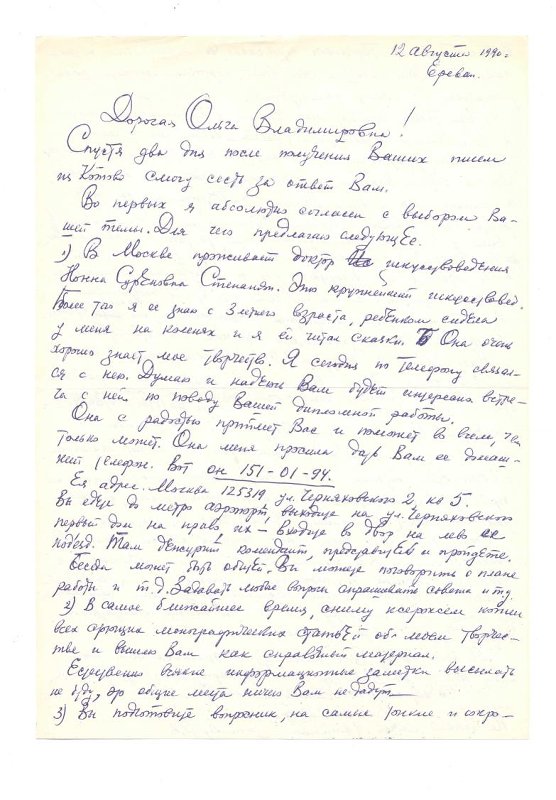 12 Августа 1990 г.
Ереван.
Дорогая Ольга Владимировна!
Спустя два дня после получения Ваших писем
из Котово смогу сесть за ответ Вам.
Во первых я абсолютно согласен с выбором Ва-
шей темы. Для чего предлагаю следующее.
1) В Москве проживает доктор искусствоведения
Нонна Суреновна Степанян. Это крупнейший искусствовед.
Более того я ее знаю с 3 летнего возраста, ребенком сидела
у меня на коленях и я ей читал сказки. Она очень
хорошо знает мое творчество. Я сегодня по телефону связал-
ся с нею. Думаю и надеюсь Вам будет интересна встре-
ча с ней по поводу Вашей дипломной работы.
Она с радостью примет Вас и поможет во всем, чем
только может. Она меня просила дать Вам ее домаш-
ний телефон. Вот он 151-01-94.
Ея адрес. Москва 125319 ул. Черняховского 2, кв 5.
Вы едете до метро аэропорт, выходите на ул. Черняховского
первый дом на право их – входите в двор на лево
подъезд. Там дежурит комендант, представитесь и пройдете.
Беседа может быть общей. Вы можете поговорить о плане
работы и т.д. Задавать любые вопросы спрашивать совета и тд.
2) В самое ближайшее время, сниму ксероксом копии
всех монографических статьей об моем творчес-
тве и вышлю Вам как справочный материал.
Естественно всякие информационные заметки высылать
не буду, это общие места ничего Вам не дадут
3) Вы подготовите вопросник, на самые и сокро-